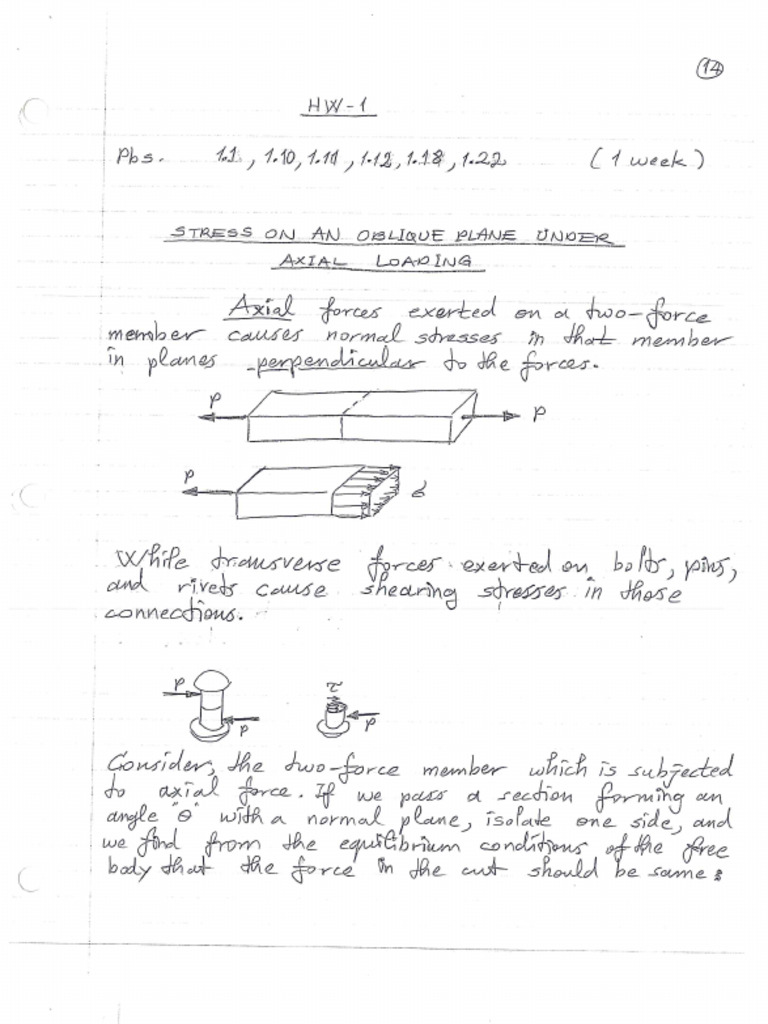 14
HW-1
Pbs. 1.1, 1.10, 1.11, 1.12, 1.18, 1.22 (1 week)
STRESS ON AN OBLIQUE PLANE UNDER
AXIAL LOADING
Axial forces exerted on a two-force
member causes normal stresses in that member
in planes perpendicular to the forces.
P P
P σ
While transverse forces exerted on bolts, pins,
and rivets cause shearing stresses in those
connections.
P τ
P P
Consider, the two-force member which is subjected
to axial force. If we pass a section forming an
angle "θ" with a normal plane, isolate one side, and
we find from the equilibrium conditions of the free
body that the force in the cut should be same: